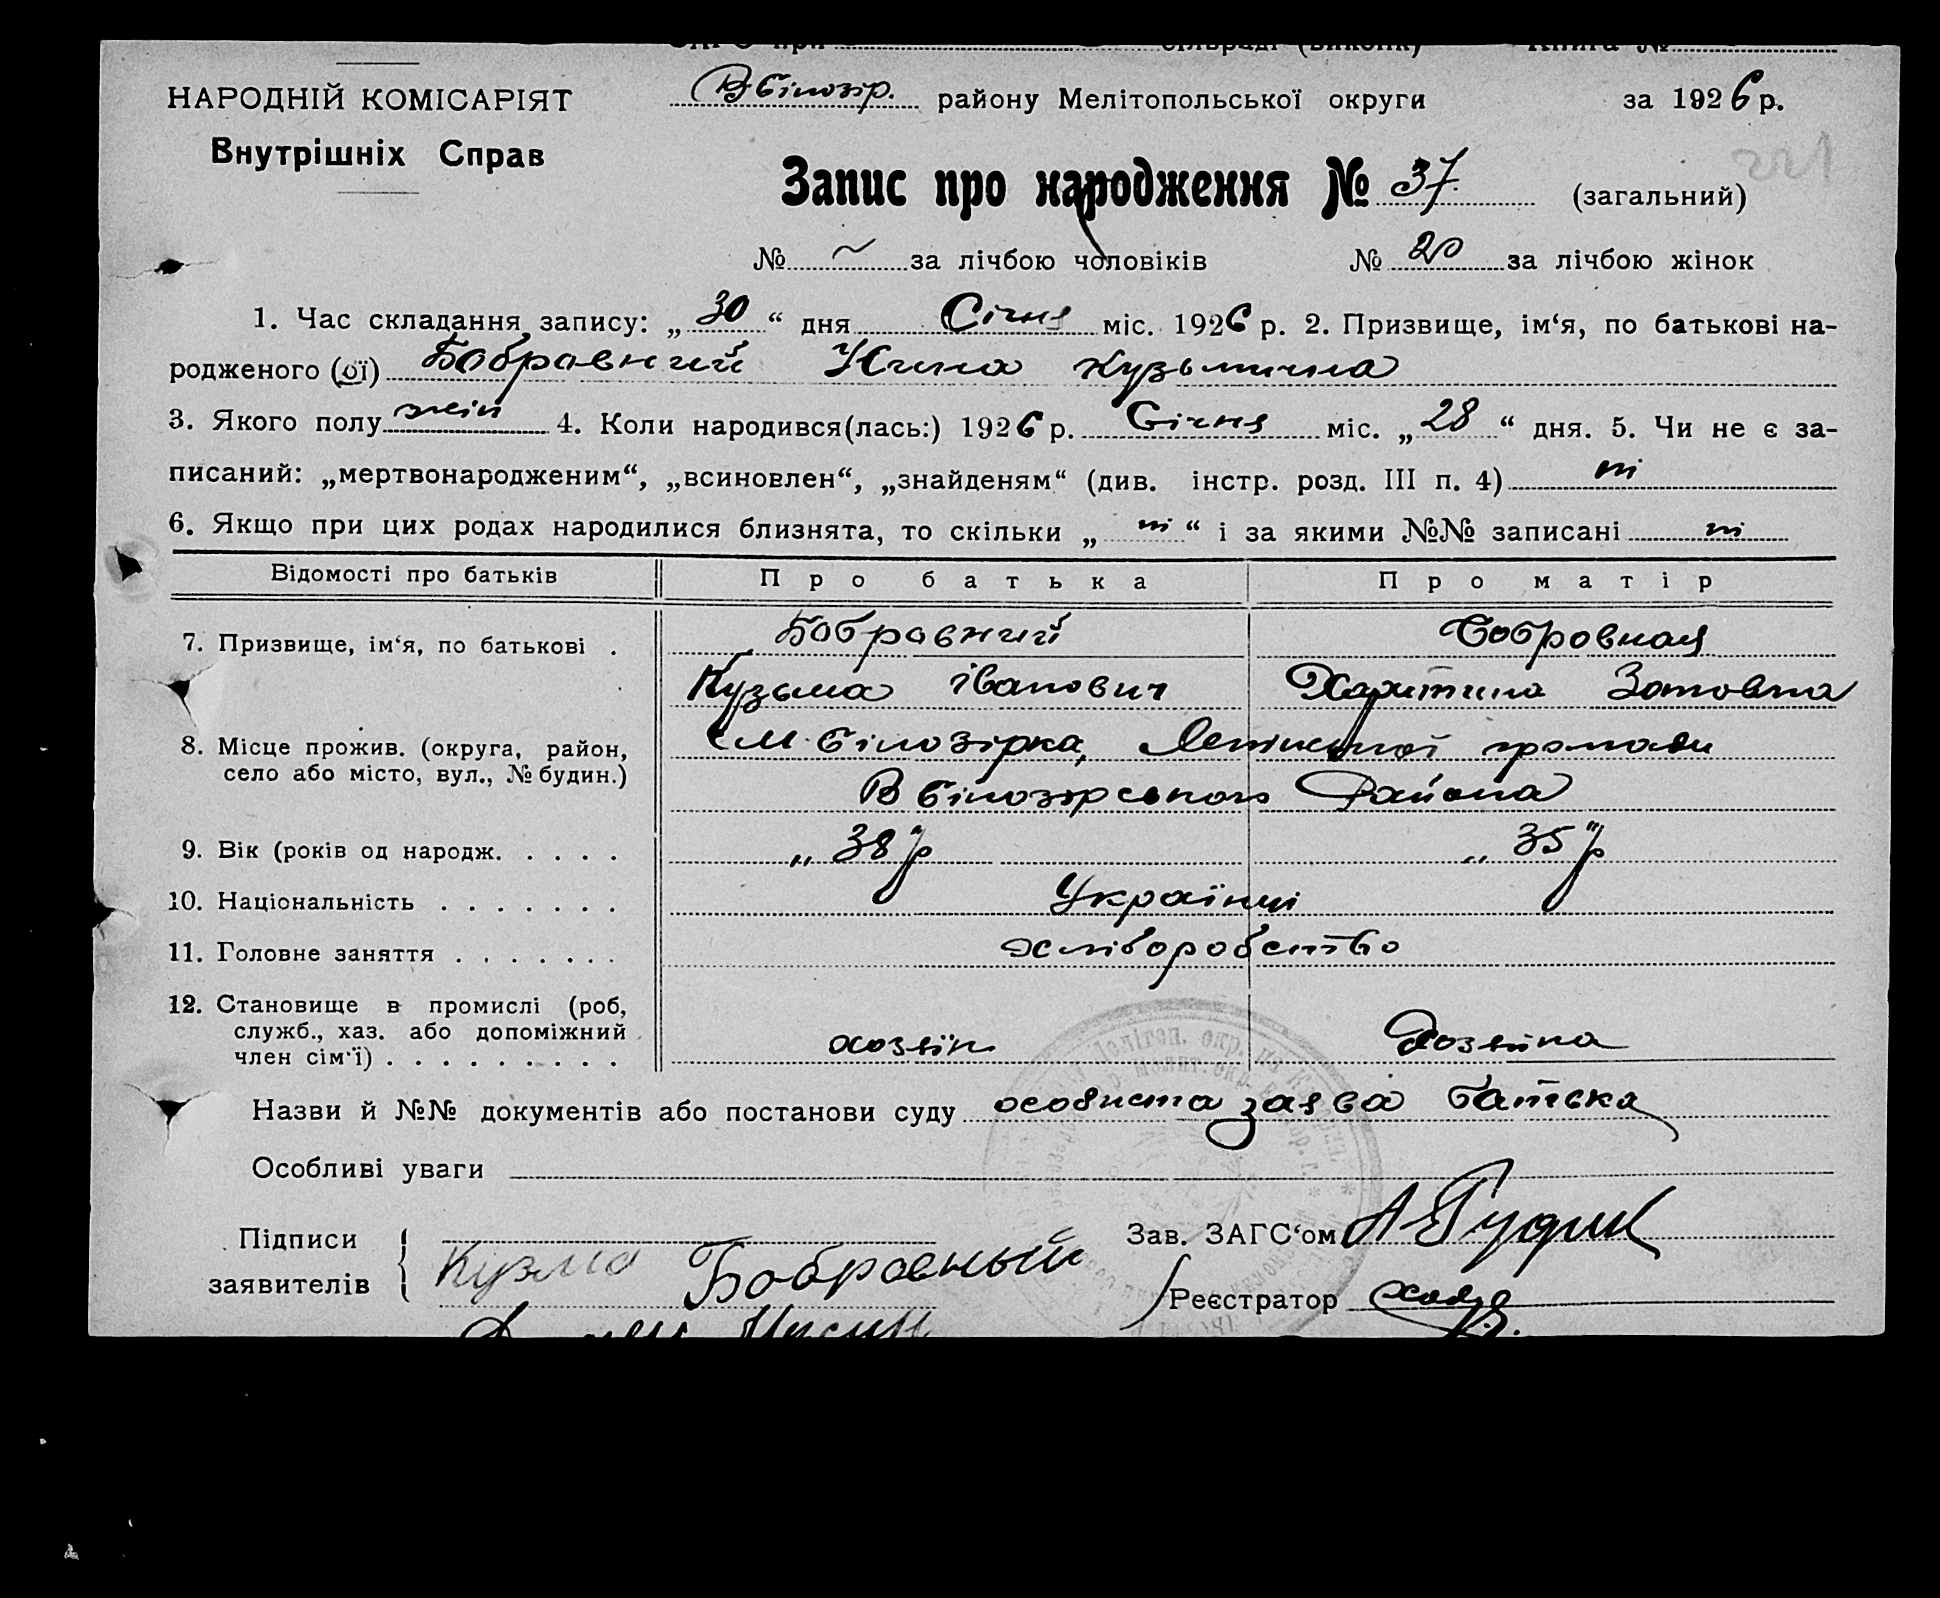 НАРОДНІЙ КОМІСАРІЯТ
Внутрішніх Справ
ЗАГС при сільраді (виконк) Книга №
В Білозір. району Мелітопольської округи за 1926 р.
221
Запис про народження № 37 (загальний)
№ ~ за лічбою чоловіків № 20 за лічбою жінок
1. Час складання запису: „30“ дня Січня міс. 1926 р. 2. Призвище, ім‘я, по батькові на-
родженого (ої) Бобравний Нина Кузьмична
3. Якого полу жін 4. Коли народився(лась:) 1926 р. Січня міс. „28“ дня. 5. Чи не є за-
писаний: „мертвонародженим“, „всиновлен“, „знайденям“ (див. інстр. розд. III п. 4) ні
6. Якщо при цих родах народилися близнята, то скільки „ні“ і за якими №№ записані ні
Відомості про батьків Про батька Про матір
7. Призвище, ім‘я, по батькові . Бобравний Бобровная
Кузьма Іванович Харитина Зотовна
8. Місце прожив. (округа, район, См. Білозірка, громади
село або місто, вул., № будин.)
В Білозірського Района
9. Вік (років од народж. . . . . „38“ р „35“ р
10. Національність . . . . . . . Українці
11. Головне заняття . . . . . . . хліборобство
12. Становище в промислі (роб,
служб., хаз. або допоміжний
член сім‘ї) . . . . . . . . . . хозяїн Хозяйка
Назви й №№ документів або постанови суду особиста заява батька
Особливі уваги
Підписи
заявителів
Кузма Бобравный
Зав. ЗАГС‘ом
Реєстратор